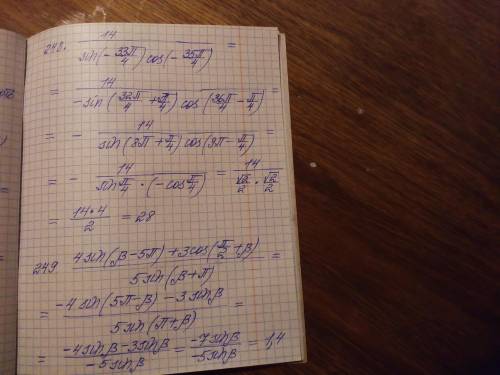 248. 14 / (sin(-33π/4) cos(-35π/4)) =
= 14 / (-sin(32π/4 + π/4) cos(36π/4 - π/4)) =
= - 14 / (sin(8π + π/4) cos(9π - π/4)) =
= - 14 / (sin π/4 · (-cos π/4)) = 14 / (√2/2 · √2/2)
= 14·4 / 2 = 28
249 (4 sin(β-5π) + 3 cos(π/2 + β)) / (5 sin(β+π)) =
= (-4 sin(5π-β) - 3 sin β) / (5 sin(π+β)) =
= (-4 sin β - 3 sin β) / (-5 sin β) = (-7 sin β) / (-5 sin β) = 1,4